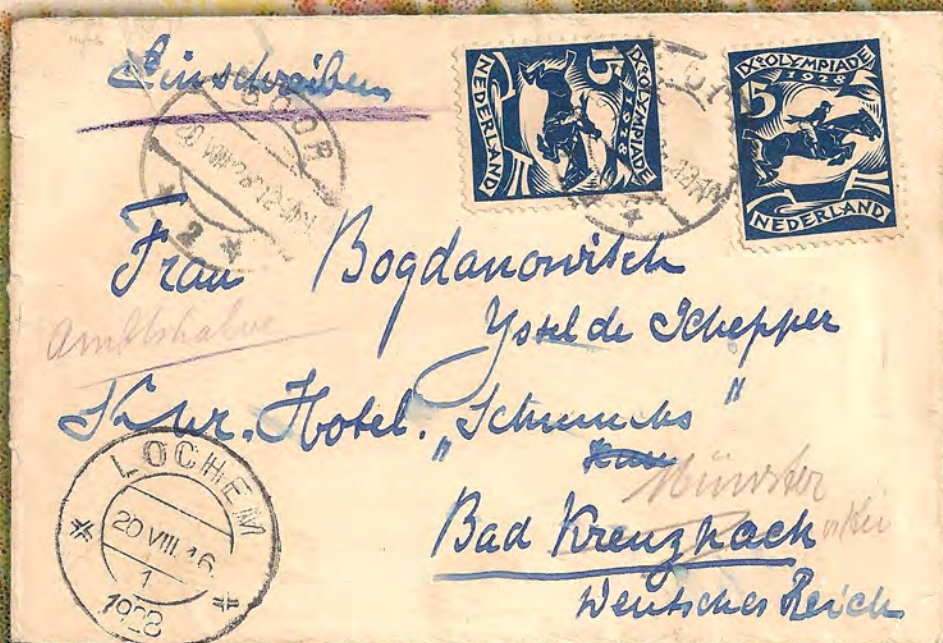 Einschreiben
GOOR
20 VIII 28 12-1N
1
IXe OLYMPIADE
1928
15
NEDERLAND
IXe OLYMPIADE
1928
15
NEDERLAND
12-1N
Frau Bogdanowitch
Yssel de Schepper
Amtshalber
Kur. Hotel. „Schmucks"
Münster
Bad Kreuznach
Deutsches Reich
LOCHEM
20 VIII. 16
1
1928